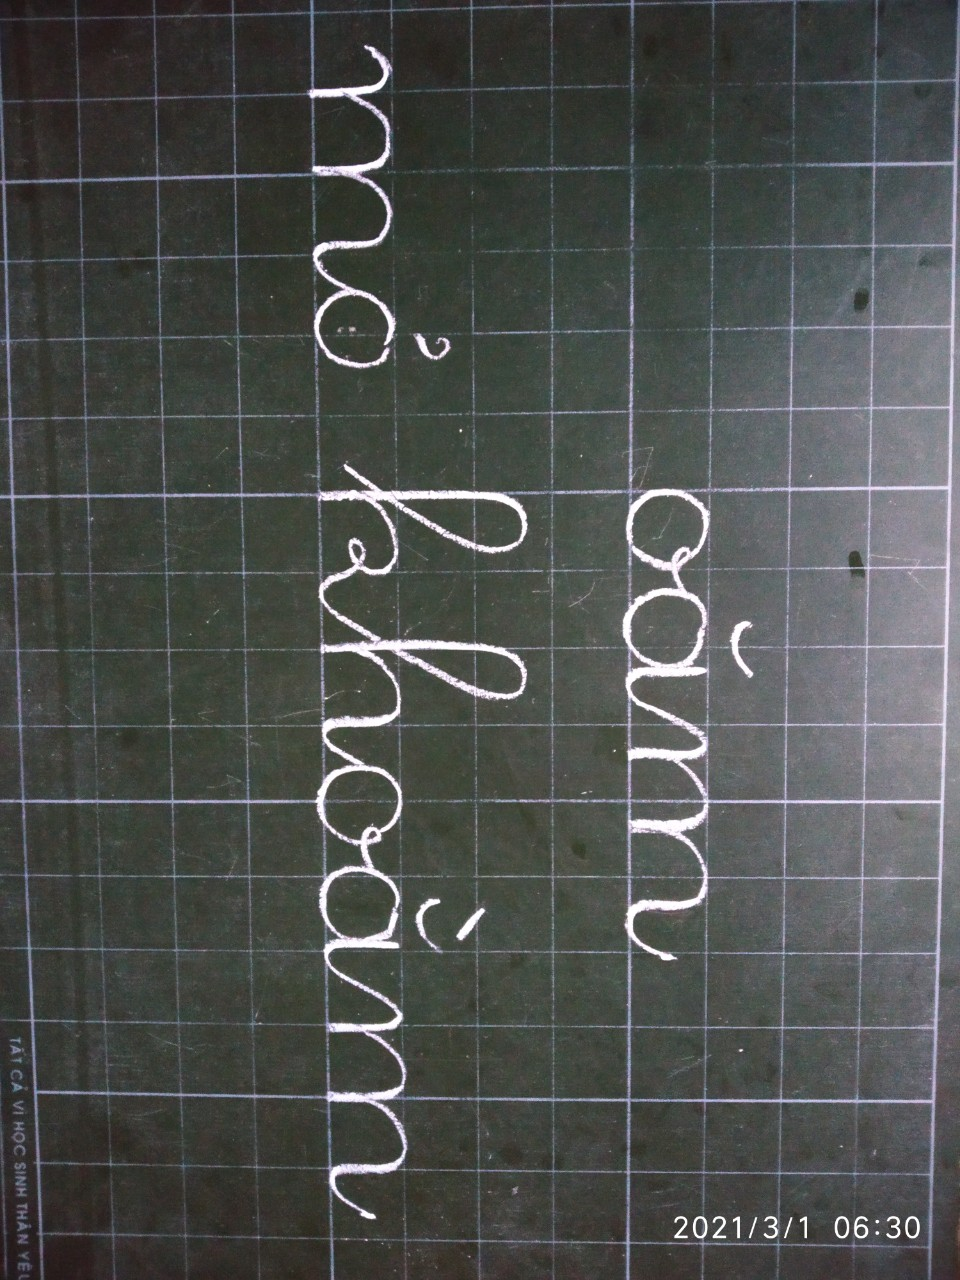 oăm
mỏ khoằm
TẤT CẢ VÌ HỌC SINH THÂN YÊU
2021/3/1 06:30